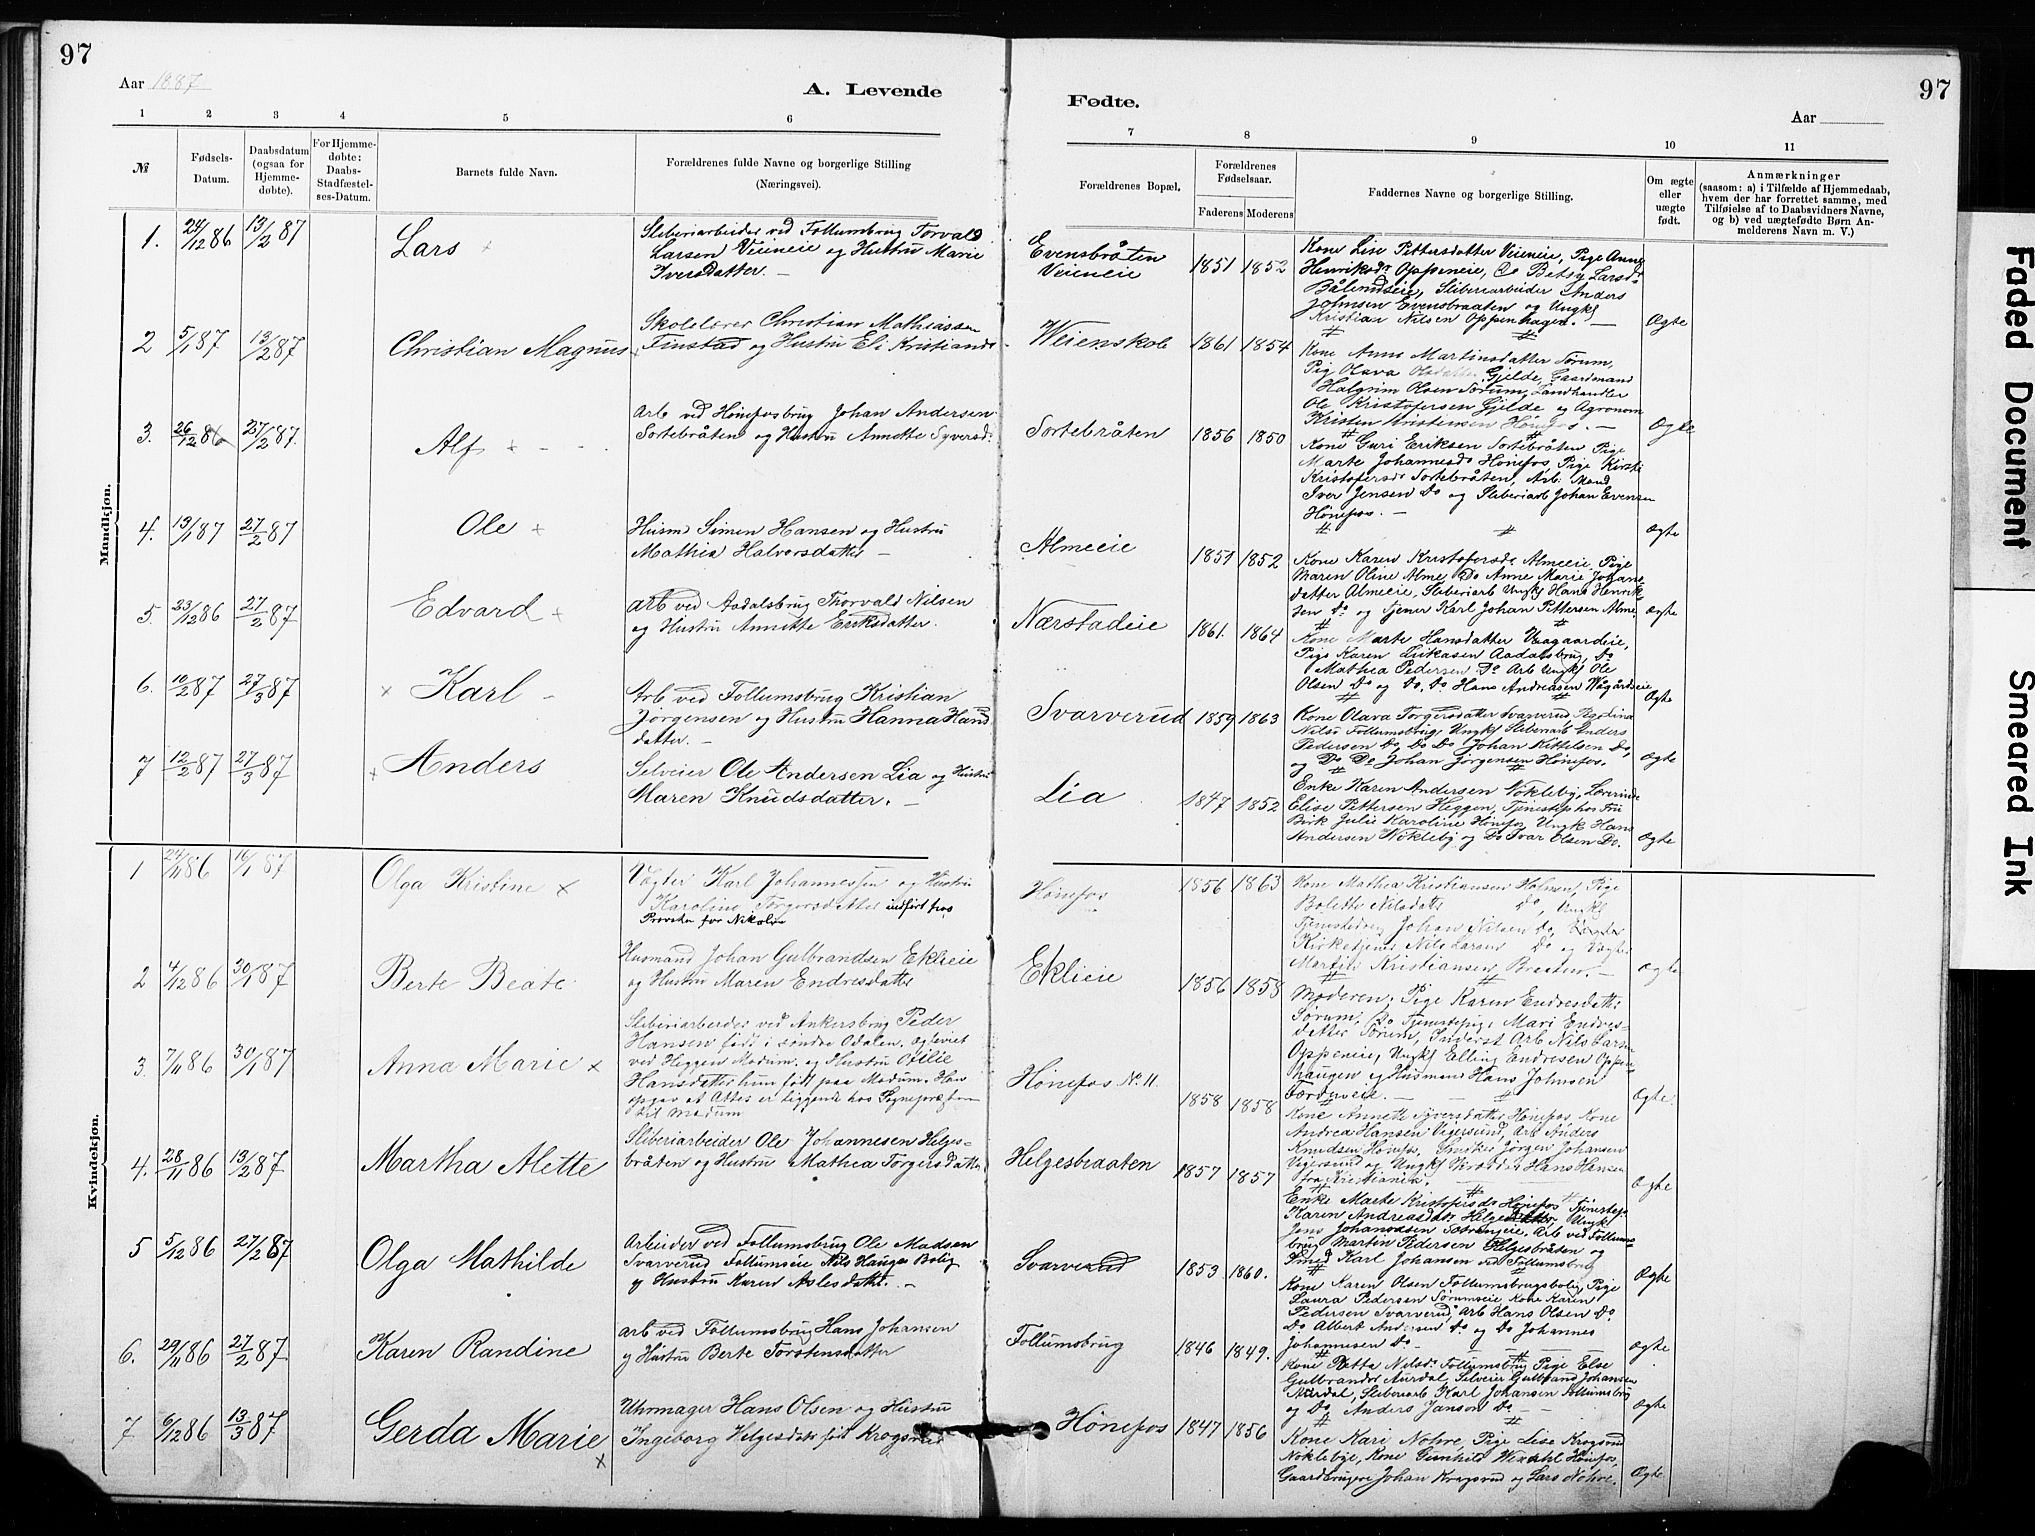 97
Aar 1887
A. Levende
1 2 3 4 5 6
№
Fødsels-
Datum.
Daabsdatum
(ogsaa for
Hjemme-
døbte).
For Hjemme-
døbte:
Daabs-
Stadfæstel-
ses-Datum.
Barnets fulde Navn.
Forældrenes fulde Navne og borgerlige Stilling
(Næringsvei).
Mandkjøn.
1. 24/12 86 13/2 87 Lars
Sliberiarbeider ved Follumsbrug Torvald
Larsen Veieneie og Hustru Marie
Iversdatter. —
2 5/1 87 13/2 87 Christian Magnus
Skolelærer Christian Mathiassen
Finstad og Hustru Eli Kristiansd.
3. 26/12 86 27/2 87. Alf
Arb ved Hønefosbrug Johan Andersen
Sortebråten og Hustru Annette Syversd.
4. 13/1 87 27/2 87 Ole
Husm Simen Hansen og Hustru
Mathea Halvorsdatter —
5. 23/12 86 27/2 87 Edvard
Arb ved Aadalsbrug Thorvald Nilsen
og Hustru Annette Eriksdatter.
6. 10/2 87 27/3 87 Karl
Arb ved Follumsbrug Kristian
Jørgensen og Hustru Hanna Hansd
datter. —
7 12/2 87 27/3 87 Anders
Selveier Ole Andersen Lia og Hustru
Maren Knudsdatter. —
Kvindekjøn.
1 24/11 86 16/1 87 Olga Kristine
Vægter Karl Johannessen og Hustru
Karoline Torgersdatter indført hos
Provsten for Nikolin
2 4/12 86 30/1 87 Berte Beate
Husmand Johan Gulbrandsen Eklieie
og Hustru Maren Endresdatter
3. 7/11 86 30/1 87 Anna Marie
Sliberiarbeider ved Ankersbrug Peder
Hansen født i søndre Odalen, opleviet
ved Heggen Modum. og Hustru Otilie
Hansdatter hun født paa Modum. Han
opgav at Attes er liggende hos Sognepræsten
til Modum
4. 28/11 86 13/2 87 Martha Alette
Sliberiarbeider Ole Johannesen Helges-
bråten og Hustru Mathea Torgersdatter
5 5/12 86 27/2 87 Olga Mathilde
Arbeider ved Follumsbrug Ole Madsen
Svarverud Follumseie Nils Hauges Bolig
og Hustru Karen Aslesdatter. —
6. 29/11 86 27/2 87 Karen Randine
Arb ved Follumsbrug Hans Johansen
og Hustru Berte Torstensdatter
7 6/12 86 13/3 87 Gerda Marie
Uhrmager Hans Olsen og Hustru
Ingeborg Helgesdatr født Krogsrud
97
Fødte.
Aar
7 8 9 10 11
Forældrenes Bopæl.
Forældrenes
Fødselsaar.
Faderens Moderens
Faddernes Navne og borgerlige Stilling.
Om ægte
eller
uægte
født.
Anmærkninger
(saasom: a) i Tilfælde af Hjemmedaab,
hvem der har forrettet samme, med
Tilføielse af to Daabsvidners Navne,
og b) ved uægtefødte Børn An-
melderens Navn m. V.)
Evensbråten
Veieneie 1851 1852
Kone Lise Pettersdatter Veieneie, Pige Anne
Henriksdr Oppeneie, Do Betsy Larsdr
Bålendseie, Sliberiarbeider Anders
Johnsen Evensbraaten og Ungk
Kristian Nilsen Oppenhagen. — Ægte
Weienskole 1861 1854
Kone Anne Martinsdatter Sørum,
Pig Olava Olsdatter Gjelde, Gaardmand
Halgrim Olsen Sørum, Landhandler
Ole Kristofersen Gjelde og Agronom
Kristen Kristensen Hønefos. — Ægte
Sortebråten 1856 1850
Kone Guri Eriksen Sortebråten Pige
Marte Johannesdr Hønefos, Pige Kirsti
Kristofersdr Sortebråten, Arb. Mand
Iver Jensen Do og Sliberiarb Johan Evensen
Hønefos. — Ægte
Almeeie 1851 1852
Kone Karen Kristofersdr Almeeie, Pige
Maren Oline Alme, Do Anne Marie Johans
datter Almeeie, Sliberiarb Ungk Hans Henrik-
sen Do og tjener Karl Johan Pettersen Alme. Ægte
Nærstadeie 1861. 1864
Kone Marte Hansdatter Vaagaardeie,
Pige Karen Lukasen Aadalsbrug, Do
Mathea Pedersen Do Arb Ungk Ole
Olsen Do og Do. Do Hans Andreasen Wågårdseie Ægte
Svarverud 1859 1863
Kone Olava Torgersdatter Svarverud,
Nilsd Follumsbrug, Ungk Sliberiarb Anders
Pedersen Do, Do Do Johan Kittelsen Do,
og Do Do Johan Jørgensen Hønefos. Ægte
Lia 1847 1852
Enke Karen Andersen Vøkleby, Lærerinde
Elise Pettersen Heggen, Tjenestep. hos Fru
Birk Julie Karoline Hønefos, Ungk Hans
Andersen Wøkleby og Do Ivar Olsen Do. Ægte
Hønefos 1856 1863
Kone Mathea Kristiansen Holmen, Pige
Bolette Nilsdatter Do, Ungk
Tjenestedreng Johan Nilsen Do,
Kirketjener Nils Larsen Do og Vægter
Martin Kristiansen Braaten. — Ægte
Eklieie 1856 1858
Moderen, Pige Karen Endresdatter
Sørum, Do Tjenestepig. Mari Endres-
datter Sørum, Inderst Arb Nils Larsen
Oppeneie, Ungk Elling Endresen Oppen-
haugen og Husmand Hans Johnsen
Ægte.
Hønefos No 11 1858 1858
Kone Annette Syversdatter Hønefos, Kone
Andrea Hansen Vigersund, Arb Anders
Knudsen Hønefos, Snedker Jørgen Johansen
Vigersund og Ungk Skrædder Hans Hansen
fra Kristiania. Ægte
Helgesbraaten 1857 1857
Enke Marte Kristofersdr Hønefos Tjenestep.
Karen Andreasdatr Helgesbråten, Ungk
Jens Johannesen, Arb ved Follums-
brug Martin Pedersen Helgesbråten og
Smed Karl Johansen ved Follumsbrug Ægte
Svarverud 1853 1860.
Kone Karen Olsen Follumsbrugsbolig, Pige
Laura Pedersen Sørumseie Kone Karen
Pedersen Svarverud, Arb Hans Olsen Do
Do Albert Andersen Do og Do Johannes
Johannesen Do Ægte
Follumsbrug 1846 1849.
Kone Netta Nilsdr Follumsbrug Pige Else
Gulbrandsr Aurdal, Selveier Gulbrand Johansen
Aurdal, Sliberiarb Karl Johansen Follumsbrug
og Do Anders Janson Do — Ægte
Hønefos 1847 1856
Kone Kari Nohre, Pige Lise Krogsrud
Nøklebye, Kone Gunhild Wendahl Hønefos,
Gaardbrugere Johan Kragsrud og Lars Nohre. Ægte
Faded Document
Smeared Ink